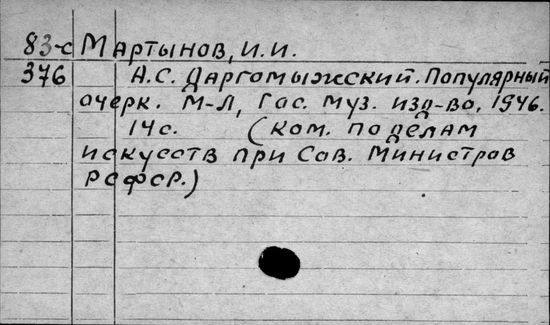 83-с Мартынов, И.И.
376 А.С. Даргомыжский. Популярный
очерк. М-Л, Гос. муз. изд-во, 1946.
14с. (Ком. по делам
искусств при Сов. Министров
РСФСР.)